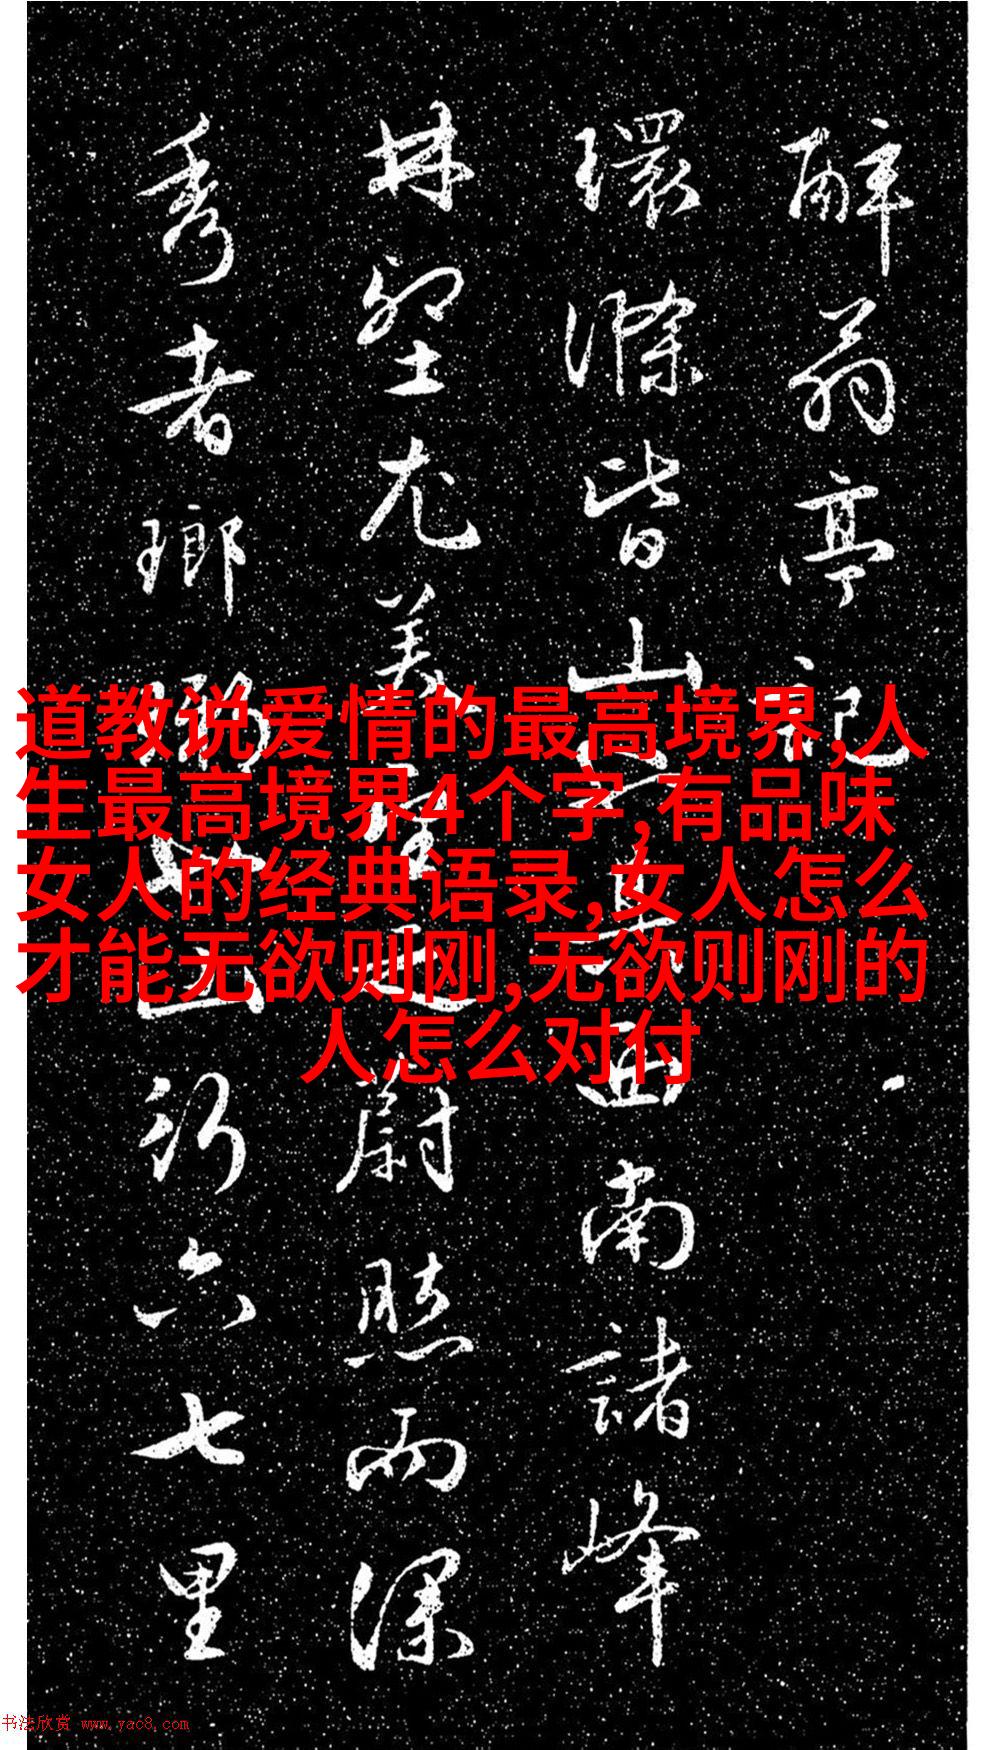 醉翁亭記
環滁皆山也其西南諸峰
林壑尤美望之蔚然而深
秀者瑯琊也山行六七里
道教说爱情的最高境界,人
生最高境界4个字,有品味
女人的经典语录,女人怎么
才能无欲则刚,无欲则刚的
人怎么对付
书法欣赏 www.yac8.com